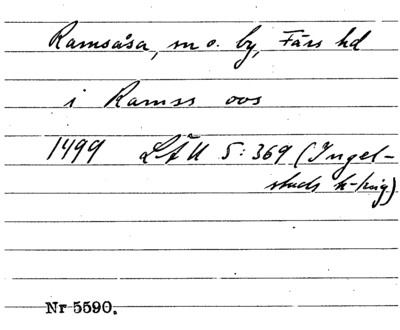 Ramsåsa, sn o. by, Färs hd
i Ramss oos
1499 LÄU 5:369 (Ingel-
stads h-ting)
Nr 5590.